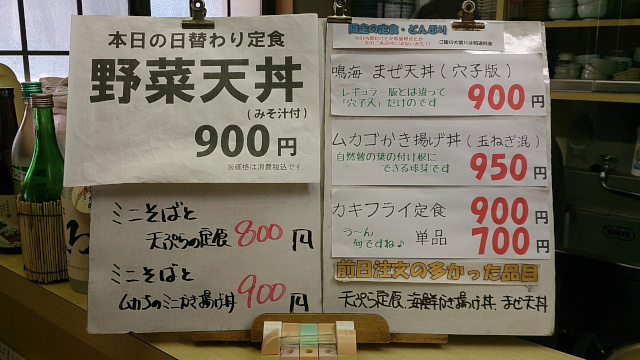 本日の日替わり定食
野菜天丼
(みそ汁付)
900円
※価格は消費税込です
ミニそばと
天ぷらの定食 800円
ミニそばと
ムカゴのミニかき揚げ丼 900円
限定の定食・どんぶり
ご飯の大盛りは別途料金
鳴海 まぜ天丼(穴子版)
レギュラー版とは違って
「穴子天」だけのです
900円
ムカゴかき揚げ丼(玉ねぎ混)
自然薯の葉の付け根に
できる球芽です
950円
カキフライ定食 900円
う〜ん
旬ですね♪
単品 700円
前日注文の多かった品目
天ぷら定食、海鮮かき揚げ丼、まぜ天丼